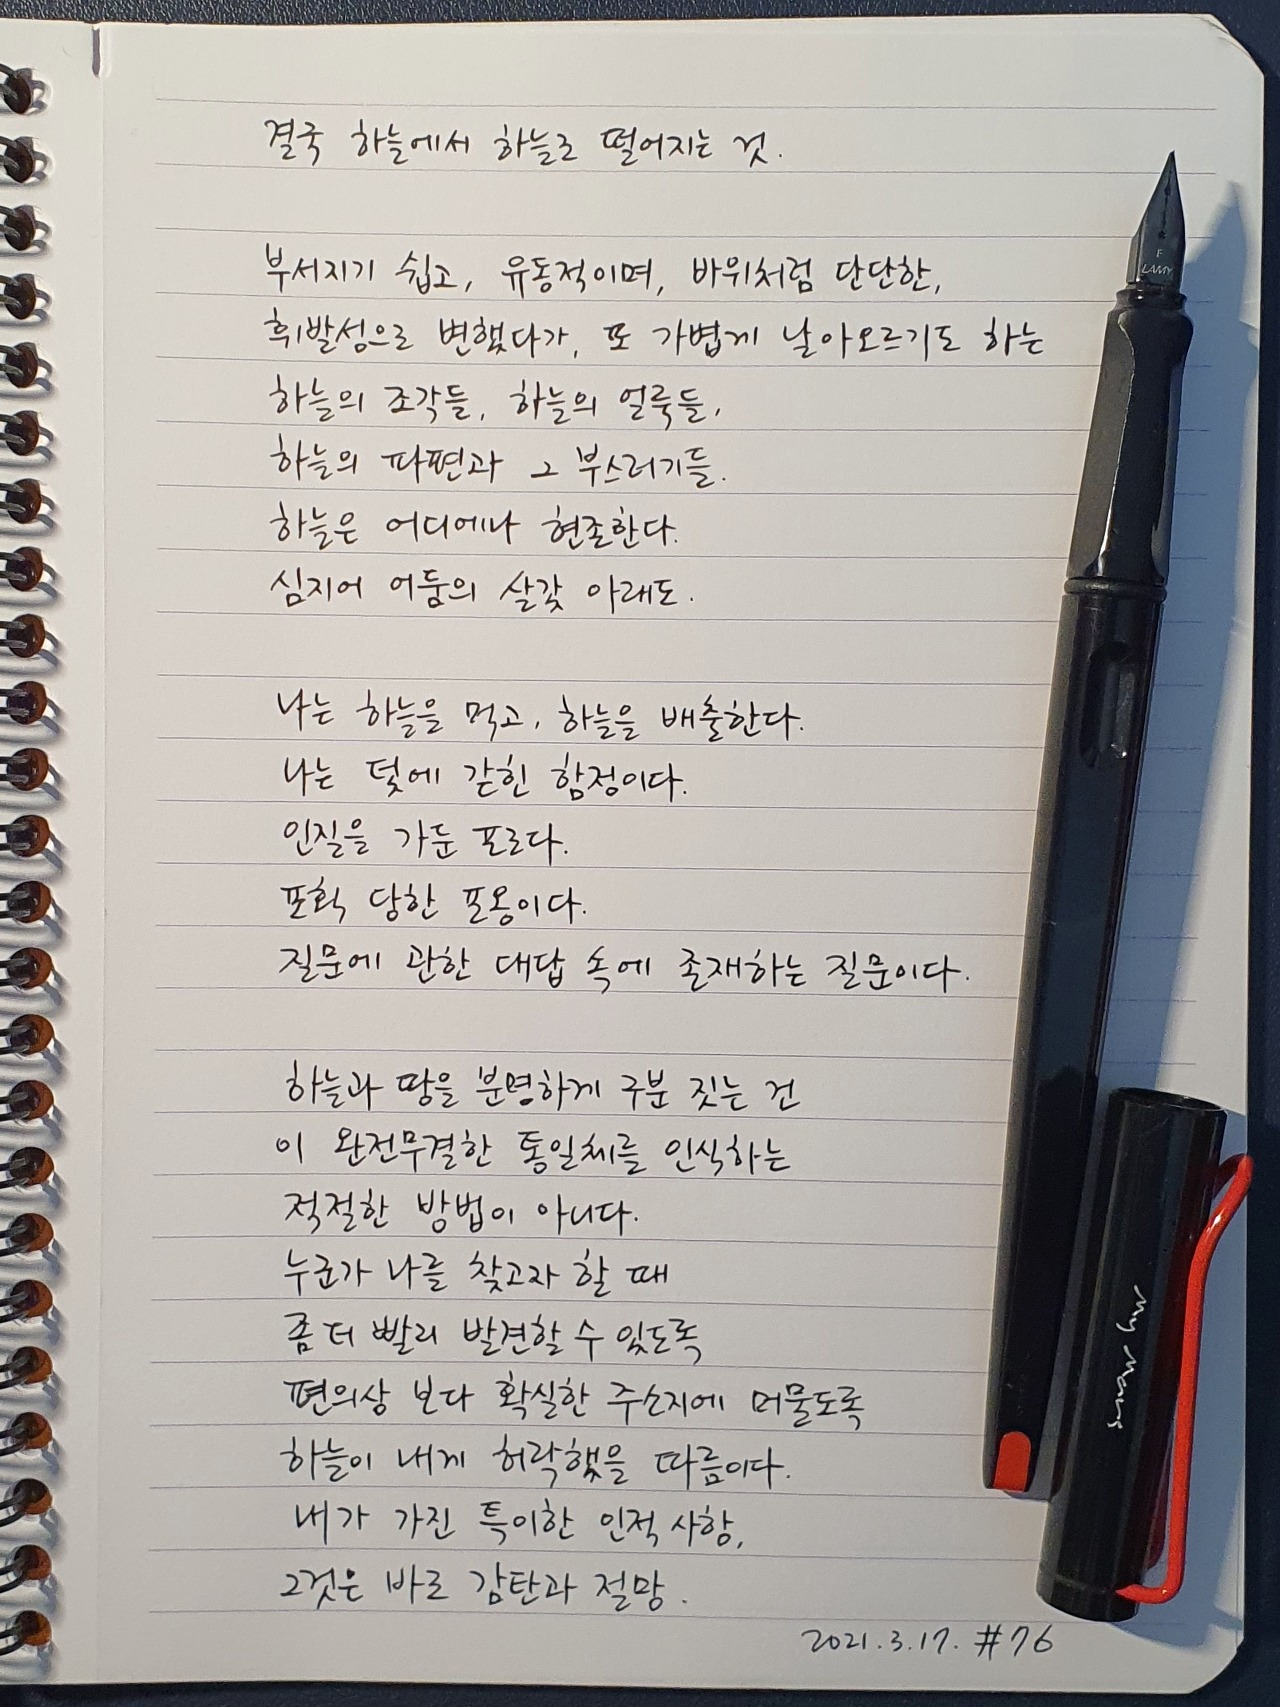 결국 하늘에서 하늘로 떨어지는 것.
부서지기 쉽고, 유동적이며, 바위처럼 단단한,
휘발성으로 변했다가, 또 가볍게 날아오르기도 하는
하늘의 조각들, 하늘의 얼룩들,
하늘의 파편과 그 부스러기들.
하늘은 어디에나 현존한다.
심지어 어둠의 살갗 아래도.
나는 하늘을 먹고, 하늘을 배출한다.
나는 덫에 갇힌 함정이다.
인질을 가둔 포로다.
포획 당한 포옹이다.
질문에 관한 대답 속에 존재하는 질문이다.
하늘과 땅을 분명하게 구분 짓는 건
이 완전무결한 통일체를 인식하는
적절한 방법이 아니다.
누군가 나를 찾고자 할 때
좀 더 빨리 발견할 수 있도록
편의상 보다 확실한 주소지에 머물도록
하늘이 내게 허락했을 따름이다.
내가 가진 특이한 인적 사항,
그것은 바로 감탄과 절망.
2021.3.17. #76
F
LAMY
my